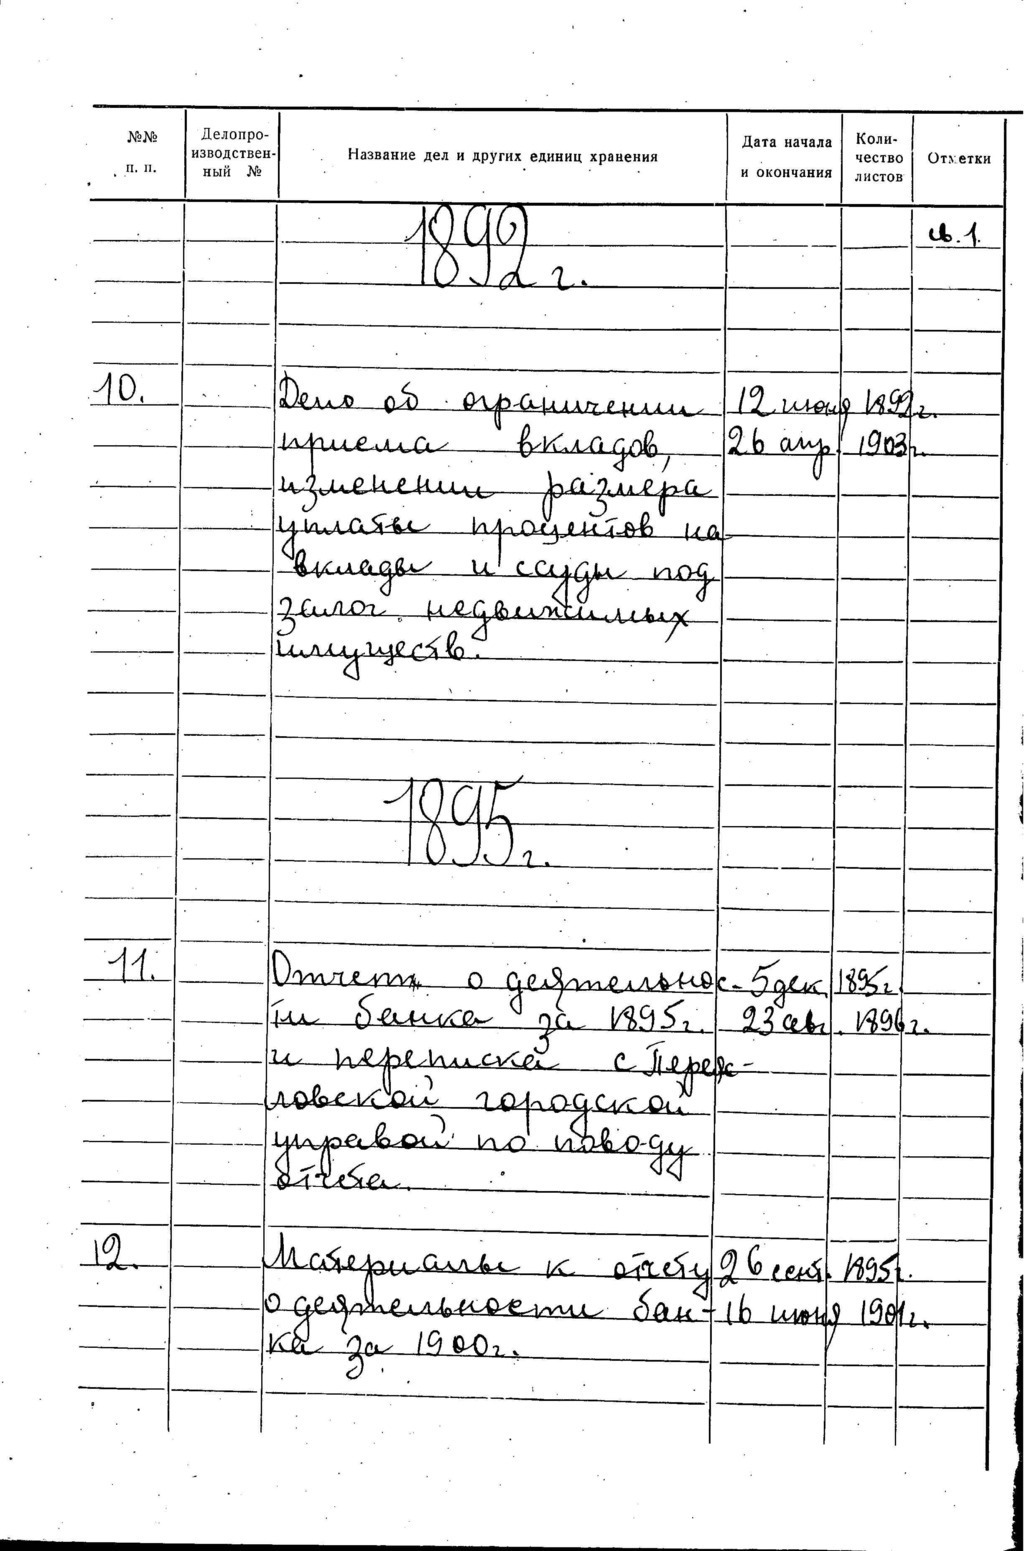 №№ п. п.
Делопро-
изводствен-
ный №
Название дел и других единиц хранения
Дата начала
и окончания
Коли-
чество
листов
Отметки
1892 г.
св. 1.
10. Дело об ограничении 12 июня 1892 г.
приема вкладов, 26 апр. 1903 г.
изменении размера
уплаты процентов на
вклады и ссуды под
залог недвижимых
имуществ.
1895 г.
11. Отчет о деятельнос- 5 дек. 1895 г.
ти банка за 1895 г. 23 авг. 1896 г.
и переписка с Переяс-
ловской городской
управой по поводу
отчета.
12. Материалы к отчету 26 сент. 1895 г.
о деятельности бан- 16 июня 1901 г.
ка за 1900 г.